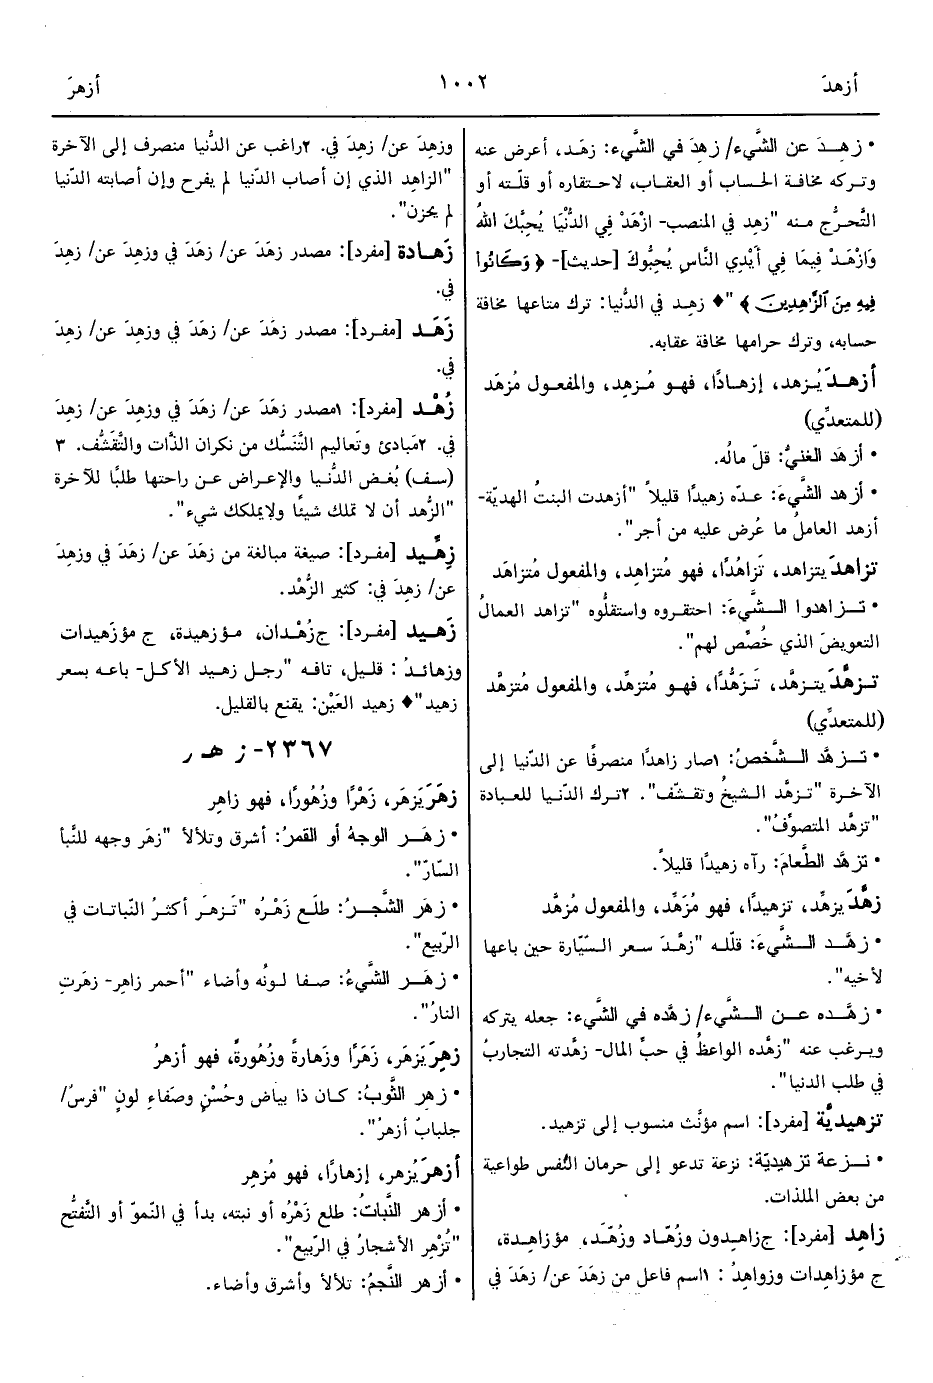 أزهدَ
١٠٠٢
أزهرَ
• زهِـدَ عن الشَّيء/ زهِدَ في الشَّيء: زهَد، أعرض عنه
وتركه مخافة الحساب أو العقاب، لاحتقاره أو قلّته أو
التَّحرُّج منه "زهِد في المنصب- ازْهَدْ فِي الدُّنْيَا يُحِبَّكَ اللهُ
وَازْهَدْ فِيمَا فِي أَيْدِي النَّاسِ يُحِبُّوكَ [حديث]- ﴿ وَكَانُوا
فِيهِ مِنَ الزَّاهِدِينَ ﴾ "♦ زهِد في الدُّنيا: ترك متاعها مخافة
حسابه، وترك حرامها مخافة عقابه.
أزهـدَ يُزهد، إزهـادًا، فهـو مُـزهِد، والمفعول مُزهَد
(للمتعدِّي)
• أزهَد الغنيُّ: قلّ مالُه.
• أزهد الشَّيءَ: عـدّه زهيدًا قليلاً "أزهدت البنتُ الهديّة-
أزهد العاملُ ما عُرض عليه من أجر".
تزاهدَ يتزاهد، تَزاهُدًا، فهو مُتزاهِد، والمفعول مُتزاهَد
• تـزاهدوا الـشَّيءَ: احتقروه واستقلُّوه "تزاهد العمالُ
التعويضَ الذي خُصِّص لهم".
تـزهَّدَ يتـزهَّد، تَـزَهُّدًا، فهـو مُتزهِّد، والمفعول مُتزهَّد
(للمتعدِّي)
• تـزهَّد الـشَّخصُ: ١صار زاهدًا منصرفًا عن الدّنيا إلى
الآخـرة "تـزهَّد الـشيخُ وتقـشَّف". ٢ترك الدّنيا للعبادة
"تزهَّد المتصوِّفُ".
• تزهَّد الطَّعامَ: رآه زهيدًا قليلاً.
زهَّدَ يزهِّد، تزهيدًا، فهو مُزَهِّد، والمفعول مُزهَّد
• زهَّـد الـشَّيءَ: قلّله "زهَّدَ سعر السّيّارة حين باعها
لأخيه".
• زهَّـده عـن الـشَّيء/ زهَّده في الشَّيء: جعله يتركه
ويـرغب عنه "زهَّده الواعظُ في حبِّ المال- زهَّدته التجاربُ
في طلب الدنيا".
تزهيديَّة [مفرد]: اسم مؤنَّث منسوب إلى تزهيد.
• نـزعة تزهيديّة: نزعة تدعو إلى حرمان النُّفس طواعية
من بعض الملذات.
زاهِد [مفرد]: ج زاهِـدون وزُهّـاد وزُهَّـد، مؤ زاهِـدة،
ج مؤ زاهِدات وزواهِدُ : ١اسم فاعل من زهَدَ عن/ زهَدَ في
وزهِدَ عن/ زهِدَ في. ٢راغب عن الدّنيا منصرف إلى الآخرة
"الزاهِد الذي إن أصاب الدّنيا لم يفرح وإن أصابته الدّنيا
لم يحزن".
زَهـادة [مفرد]: مصدر زهَدَ عن/ زهَدَ في وزهِدَ عن/ زهِدَ
في.
زَهَـد [مفـرد]: مصدر زهَدَ عن/ زهَدَ في وزهِدَ عن/ زهِدَ
في.
زُهْـد [مفرد]: ١مصدر زهَدَ عن/ زهَدَ في وزهِدَ عن/ زهِدَ
في. ٢مَبادئ وتَعاليم التَّنَسُّك من نكران الذَّات والتَّقشُّف. ٣
(سـف) بُغض الدُّنيـا والإعـراض عـن راحتها طلبًا للآخرة
"الزُّهد أن لا تملك شيئًا ولايملكك شيء".
زِهِّيد [مفرد]: صيغة مبالغة من زهَدَ عن/ زهَدَ في وزهِدَ
عن/ زهِدَ في: كثير الزُّهْد.
زَهيد [مفرد]: ج زُهْـدان، مـؤ زهيدة، ج مؤ زَهيدات
وزهائدُ : قليل، تافه "رجل زهيد الأكل- باعه بسعر
زهيد"♦ زهيد العَيْن: يقنع بالقليل.
٢٣٦٧- ز هـ ر
زهَرَ يَزهَر، زَهْرًا وزُهُورًا، فهو زاهِر
• زهَـر الوجهُ أو القمرُ: أشرق وتلألأ "زهَر وجهه للنَّبأ
السّارّ".
• زهَر الشَّجـرُ: طلَع زَهْرُه "تَزهـرَ أكثـرُ النّباتات في
الرّبيع".
• زهَـر الشَّيءُ: صفـا لـونُه وأضاء "أحمر زاهِر- زهَرتِ
النارُ".
زهِرَ يَزهَر، زَهَرًا وزَهارةً وزُهُورةً، فهو أزهرُ
• زهِر الثَّوبُ: كـان ذا بياض وحُسْنٍ وصفَاءِ لونٍ "فرسٌ/
جلبابٌ أزهرُ".
أزهرَ يُزهر، إزهارًا، فهو مُزهِر
• أزهر النَّباتُ: طلع زَهْرُه أو نبته، بدأ في النّموّ أو التَّفتُّح
"تُزْهِر الأشجارُ في الرّبيع".
• أزهر النَّجمُ: تلألأ وأشرق وأضاء.